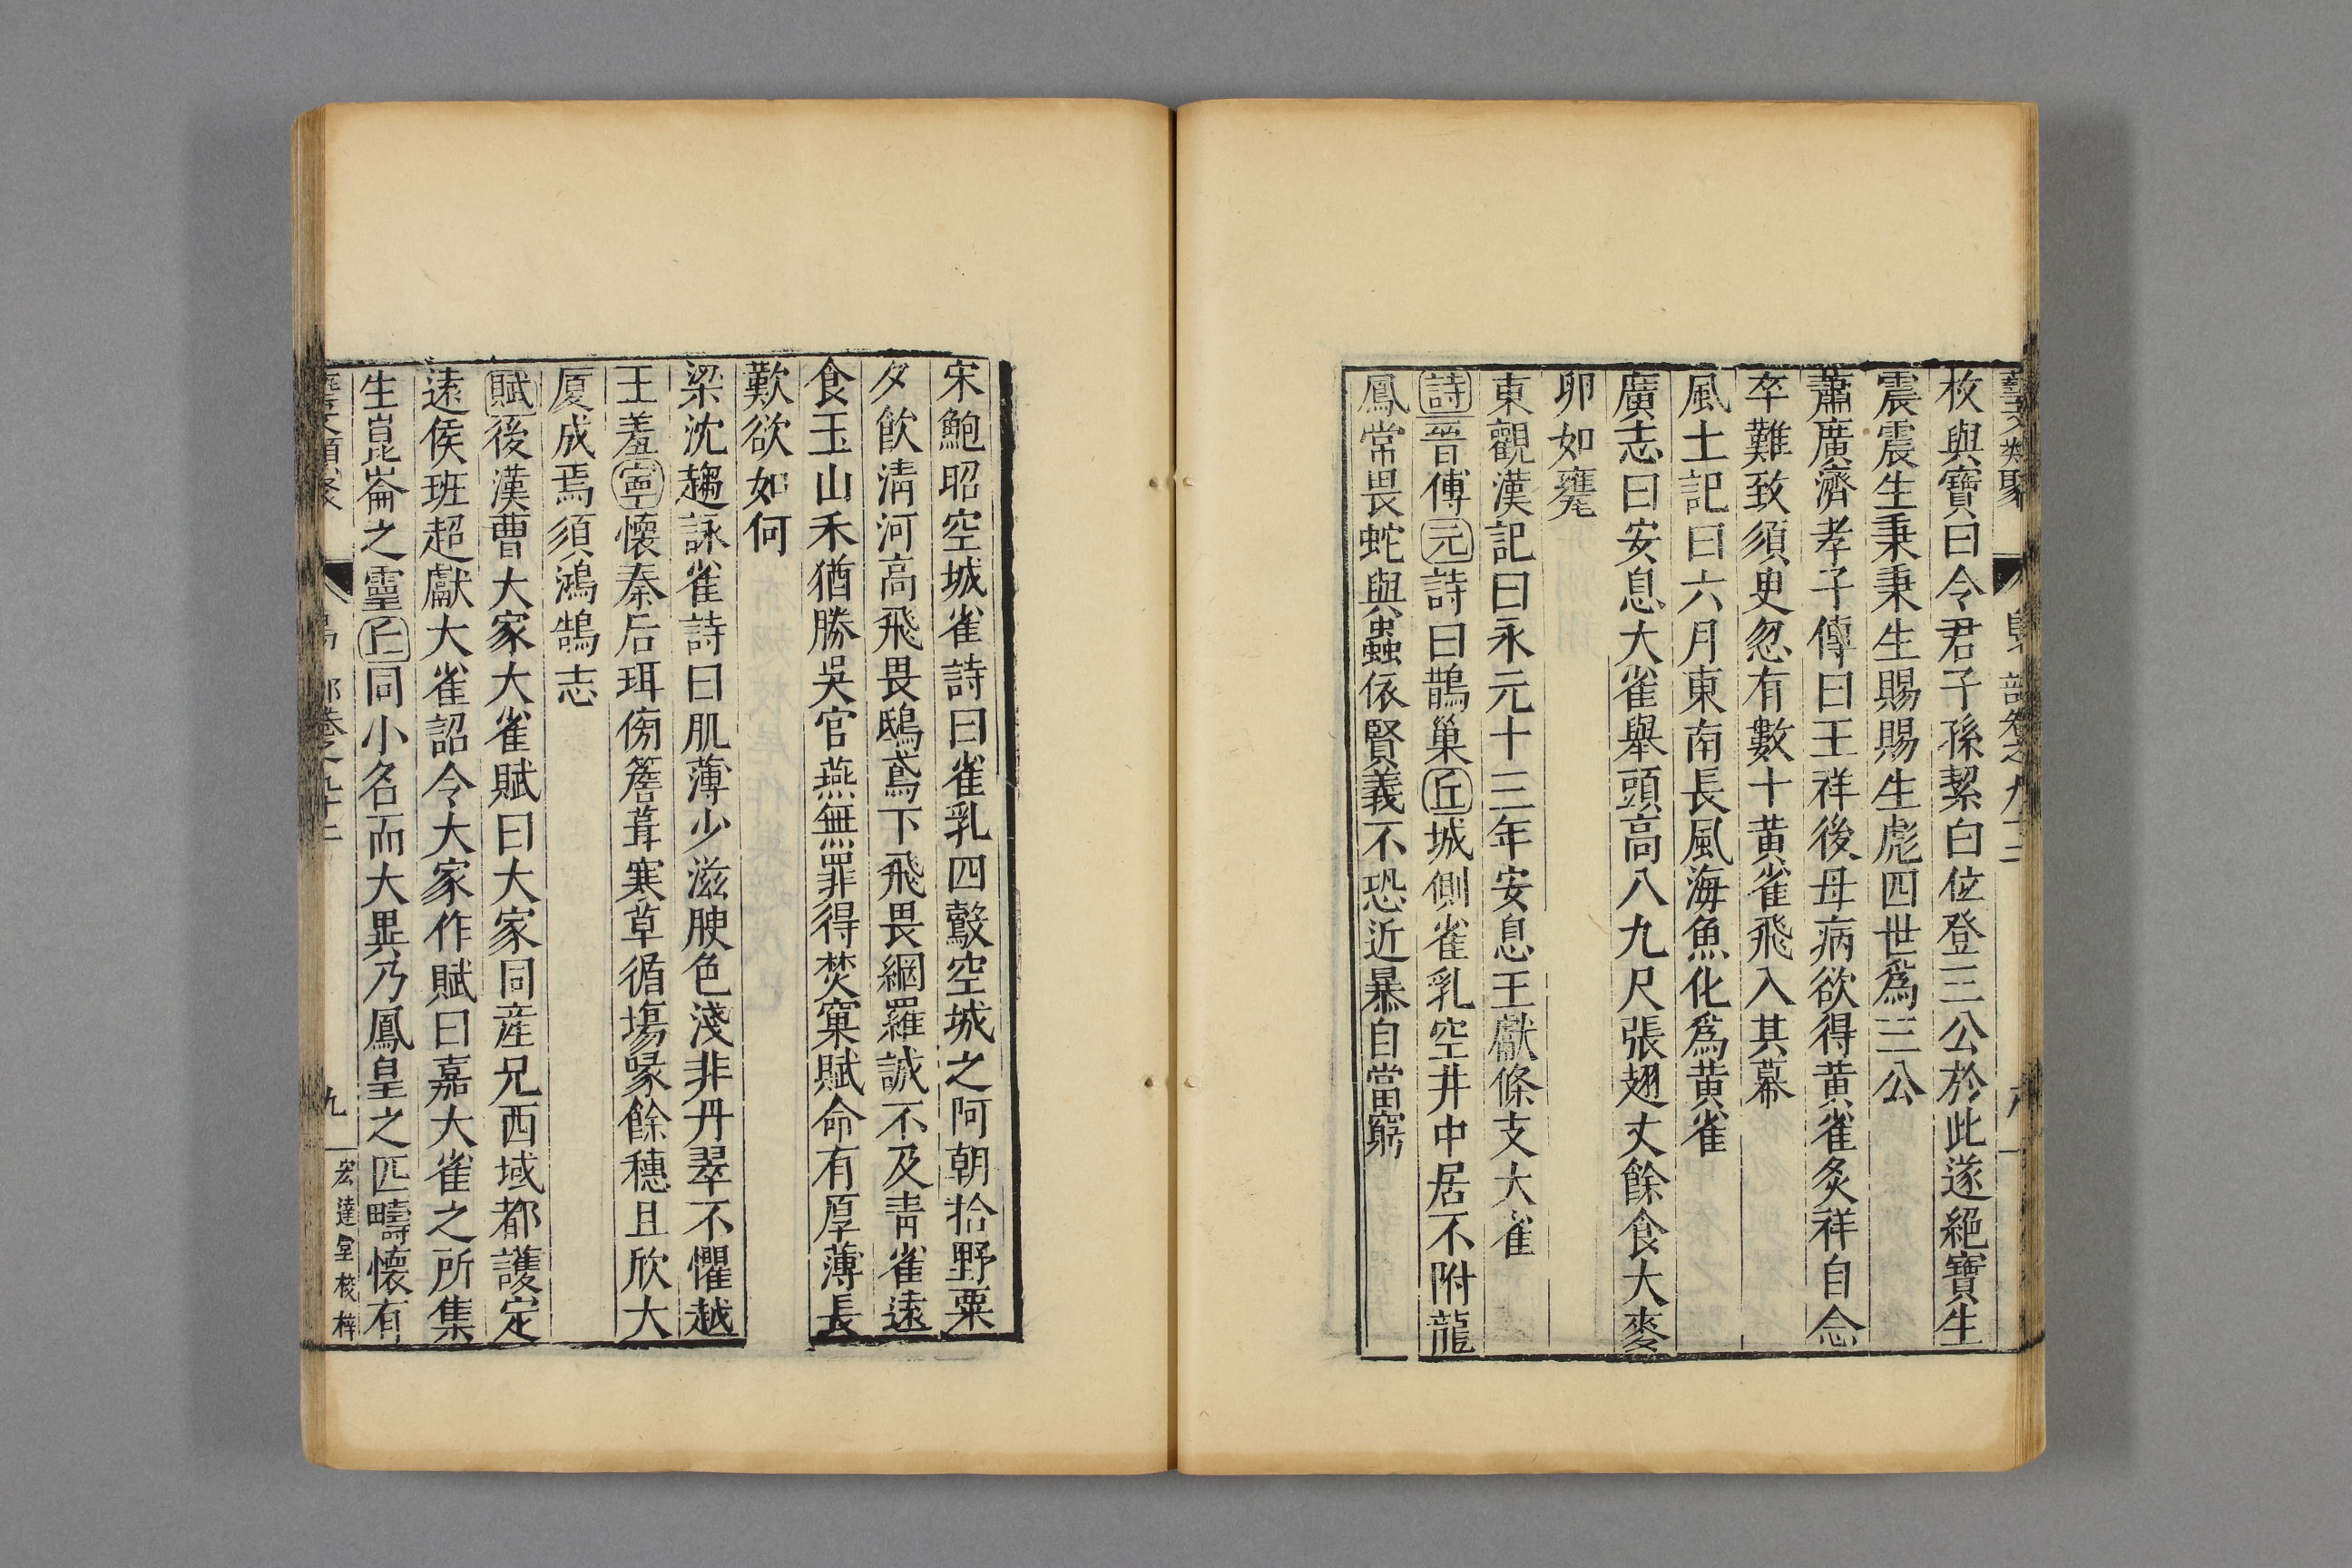 藝文類聚 鳥部卷之九十二 八
枚與寶曰令君子孫絜白位登三公於此遂絕寶生
震震生秉秉生賜賜生彪四世爲三公
蕭廣濟孝子傳曰王祥後母病欲得黄雀炙祥自念
卒難致須臾忽有數十黄雀飛入其幕
風土記曰六月東南長風海魚化爲黄雀
廣志曰安息大雀舉頭高八九尺張翅丈餘食大麥
卵如甕
東觀漢記曰永元十三年安息王獻條支大雀
詩晉傅元詩曰鵲巢丘城側雀乳空井中居不附龍
鳳常畏蛇與蟲依賢義不恐近暴自當窮
宋鮑昭空城雀詩曰雀乳四鷇空城之阿朝拾野粟
夕飲清河高飛畏鴟鳶下飛畏網羅誠不及青雀遠
食玉山禾猶勝吳宫燕無罪得焚窠賦命有厚薄長
歎欲如何
梁沈趨詠雀詩曰肌薄少滋腴色淺非丹翠不懼越
王羞寧懷秦后珥傍簷葺寒草循塲啄餘穗且欣大
厦成焉須鴻鵠志
賦後漢曹大家大雀賦曰大家同産兄西域都護定
遠侯班超獻大雀詔令大家作賦曰嘉大雀之所集
生崑崙之靈丘同小名而大異乃鳳皇之匹疇懷有
藝文類聚 鳥部卷之九十二 九 宏達堂校梓